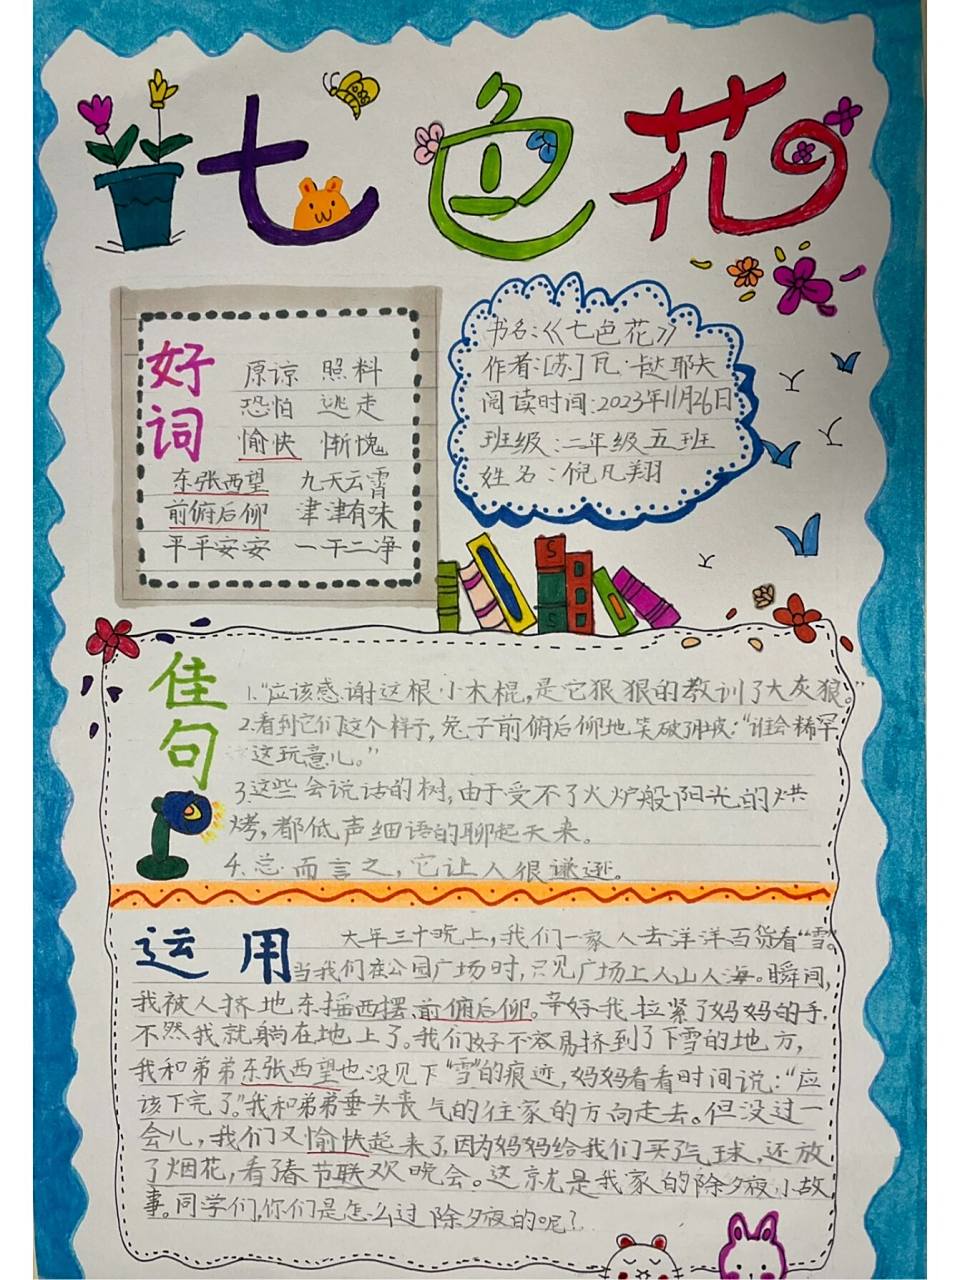 七色花
好词
原谅 照料
恐怕 逃走
愉快 惭愧
东张西望 九天云霄
前俯后仰 津津有味
平平安安 一干二净
书名:《七色花》
作者:[苏]瓦·卡达耶夫
阅读时间:2023年11月26日
班级:二年级五班
姓名:倪凡翔
佳句
1."应该感谢这根小木棍,是它狠狠的教训了大灰狼。"
2.看到它们这个样子,兔子前俯后仰地笑破了肚皮:"谁会稀罕
这玩意儿。"
3.这些会说话的树,由于受不了火炉般阳光的烘
烤,都低声细语的聊起天来。
4.总而言之,它让人很谦逊。
运用
大年三十晚上,我们一家人去洋洋百货看"雪"。
当我们在公园广场时,只见广场上人山人海。瞬间,
我被人挤地东摇西摆、前俯后仰。幸好我拉紧了妈妈的手,
不然我就躺在地上了。我们好不容易挤到了下雪的地方,
我和弟弟东张西望也没见下"雪"的痕迹,妈妈看看时间说:"应
该下完了。"我和弟弟垂头丧气的往家的方向走去。但没过一
会儿,我们又愉快起来了,因为妈妈给我们买了气球,还放
了烟花,看了春节联欢晚会。这就是我家的除夕夜小故
事。同学们,你们是怎么过除夕夜的呢?